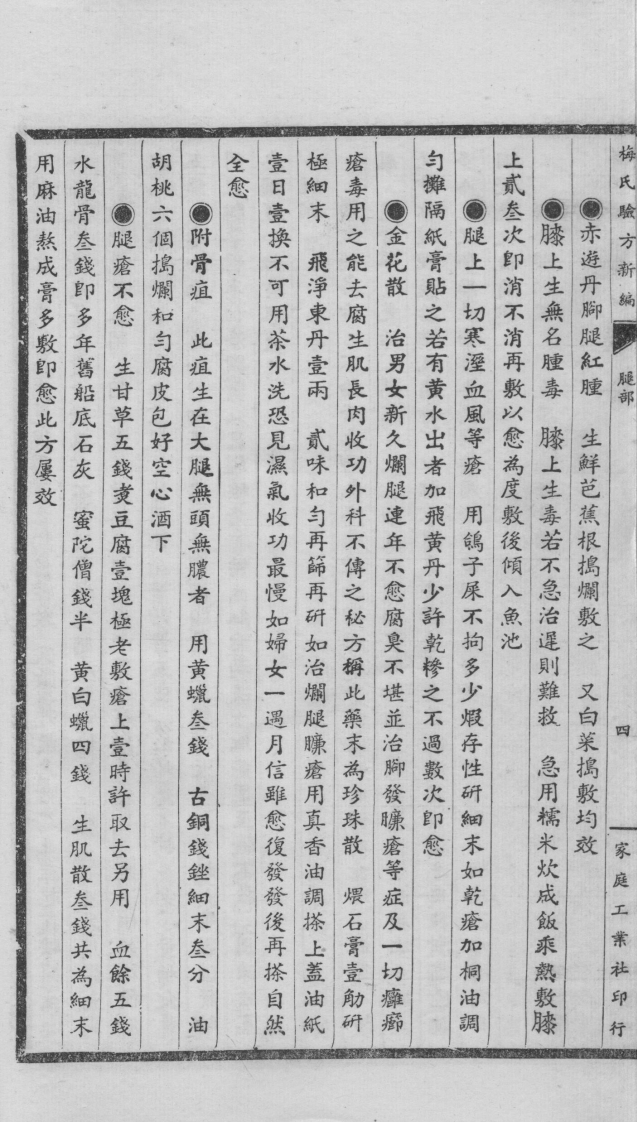 梅氏驗方新編 腿部 四 家庭工業社印行
◉赤遊丹腳腿紅腫 生鮮芭蕉根搗爛敷之 又白菜搗敷均效
◉膝上生無名腫毒 膝上生毒若不急治遲則難救 急用糯米炊成飯乘熱敷膝
上貳叁次即消不消再敷以愈為度敷後傾入魚池
◉腿上一切寒溼血風等瘡 用鴿子屎不拘多少煆存性研細末如乾瘡加桐油調
勻攤隔紙膏貼之若有黃水出者加飛黃丹少許乾糝之不過數次即愈
◉金花散 治男女新久爛腿連年不愈腐臭不堪並治腳發臁瘡等症及一切癰癤
瘡毒用之能去腐生肌長肉收功外科不傳之秘方稱此藥末為珍珠散 煨石膏壹觔研
極細末 飛淨東丹壹兩 貳味和勻再篩再研如治爛腿臁瘡用真香油調搽上蓋油紙
壹日壹換不可用茶水洗恐見濕氣收功最慢如婦女一遇月信雖愈復發發後再搽自然
全愈
◉附骨疽 此疽生在大腿無頭無膿者 用黃蠟叁錢 古銅錢銼細末叁分 油
胡桃六個搗爛和勻腐皮包好空心酒下
◉腿瘡不愈 生甘草五錢煑豆腐壹塊極老敷瘡上壹時許取去另用 血餘五錢
水龍骨叁錢即多年舊船底石灰 蜜陀僧錢半 黃白蠟四錢 生肌散叁錢共為細末
用麻油熬成膏多敷即愈此方屢效